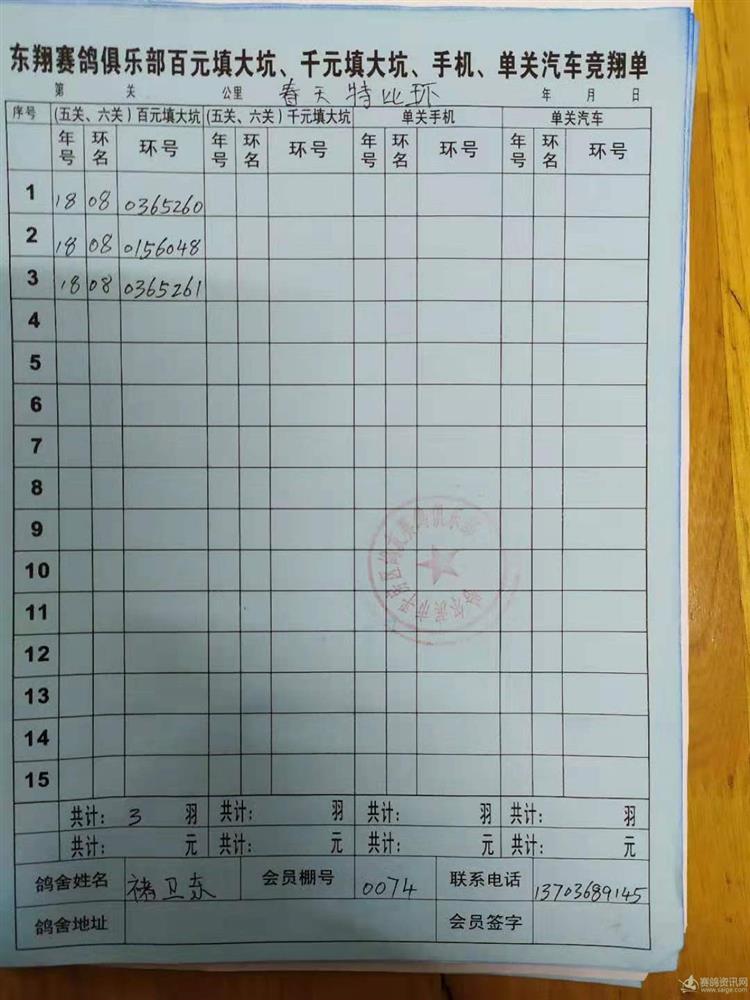 东翔赛鸽俱乐部百元填大坑、千元填大坑、手机、单关汽车竞翔单
第 关 公里 春天特比环 年 月 日
序号 (五关、六关)百元填大坑 (五关、六关)千元填大坑 单关手机 单关汽车
年号 环名 环号 年号 环名 环号 年号 环名 环号 年号 环名 环号
1 18 08 0365260
2 18 08 0156048
3 18 08 0365261
4
5
6
7
8
9
10
11
12
13
14
15
共计: 3 羽 共计: 羽 共计: 羽 共计: 羽
共计: 元 共计: 元 共计: 元 共计: 元
鸽舍姓名 褚卫东 会员棚号 0074 联系电话 13703689145
鸽舍地址 会员签字
赛鸽资讯网
www.saige.com